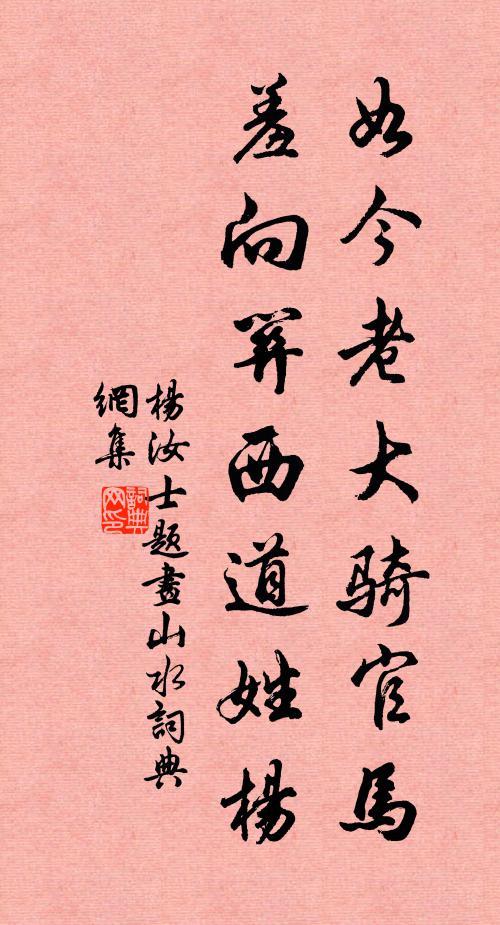 如今老大騎官馬
羞向關西道姓楊
楊汝士題畫山水詞典
網集
詞典
网印